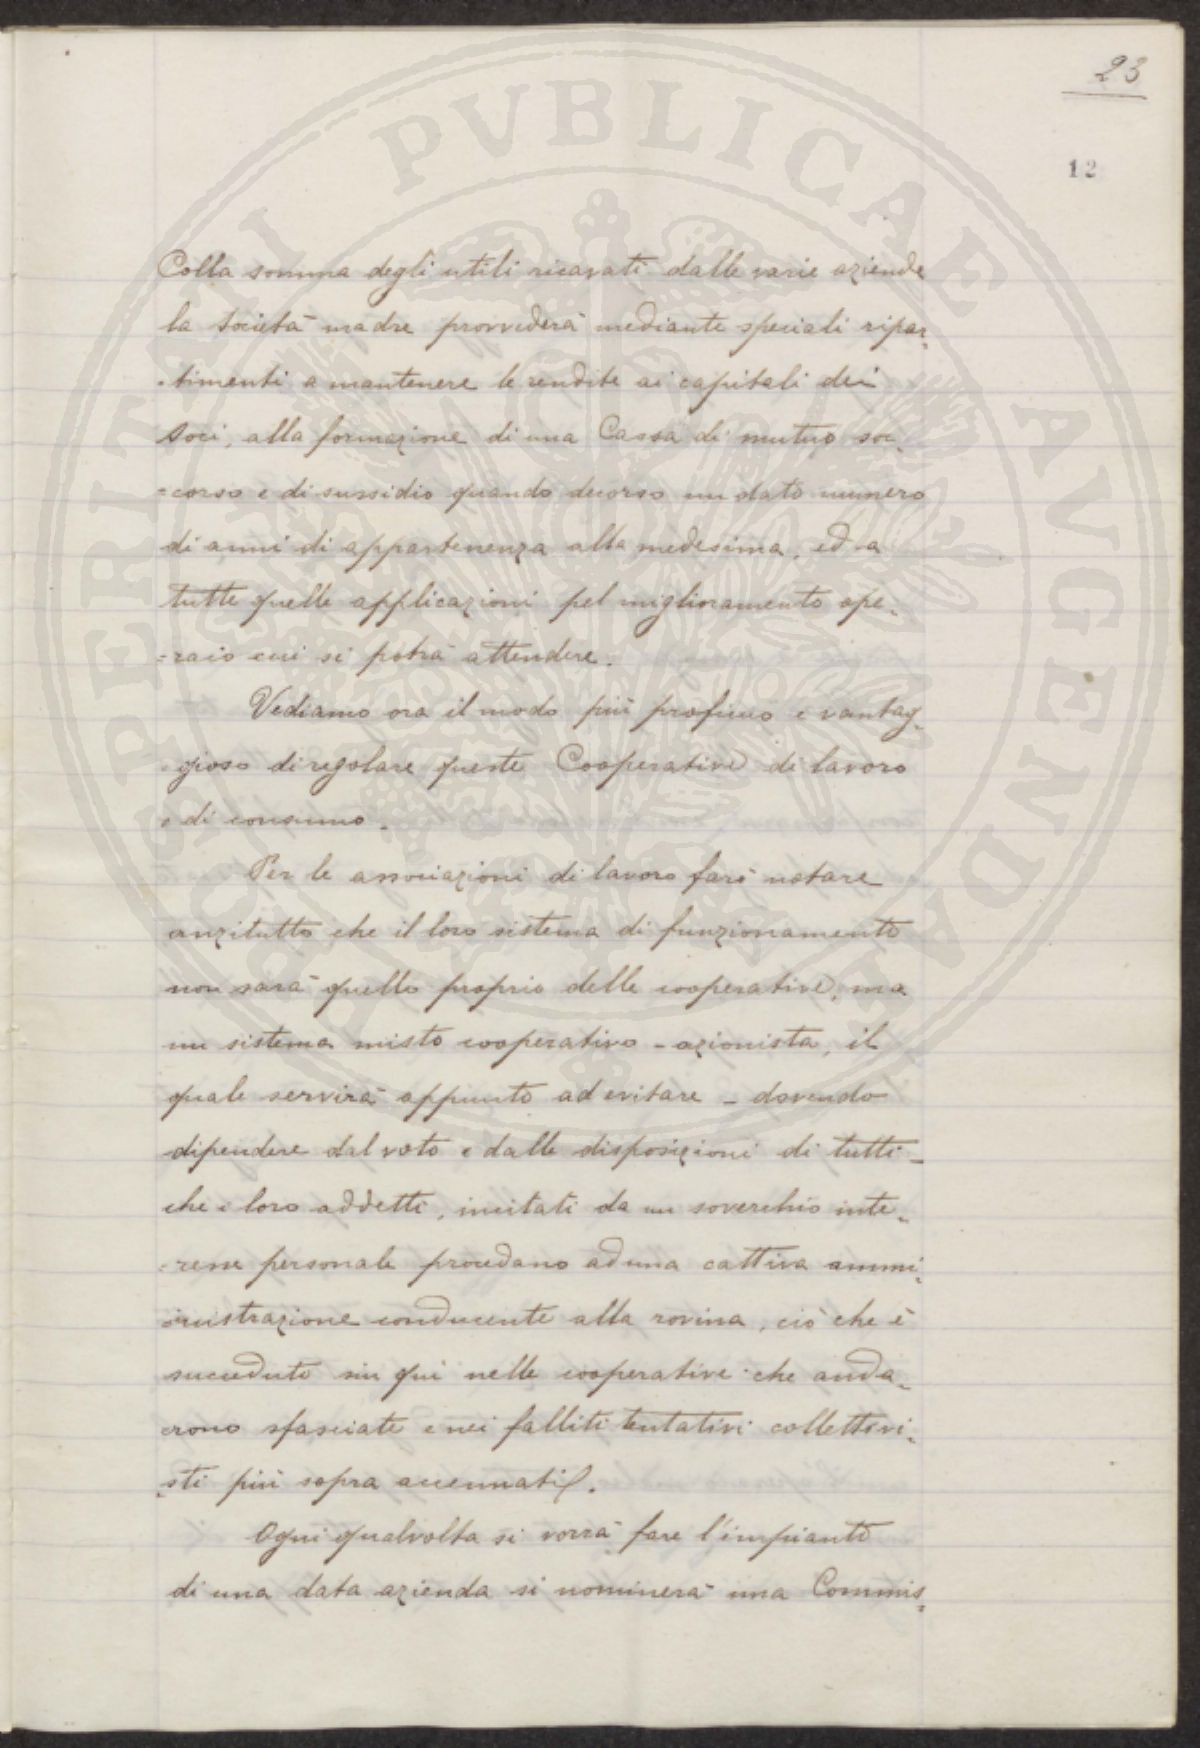 23
12
PROSPERITATI PVBLICAE AVGENDAE
Colla somma degli utili ricavati dalle varie aziende
la Società madre provvederà mediante speciali ripar-
-timenti a mantenere le rendite ai capitali dei
soci, alla formazione di una Cassa di mutuo soc-
=corso e di sussidio quando decorso un dato numero
di anni di appartenenza alla medesima, ed a
tutte quelle applicazioni pel miglioramento ope-
=raio cui si potrà attendere.
Vediamo ora il modo più proficuo e vantag-
-gioso di regolare queste Cooperative di lavoro
e di consumo.
Per le associazioni di lavoro farò notare
anzitutto che il loro sistema di funzionamento
non sarà quello proprio delle cooperative, ma
un sistema misto cooperativo-azionista, il
quale servirà appunto ad evitare - dovendo
dipendere dal voto e dalle disposizioni di tutti -
che i loro addetti, incitati da un soverchio inte-
-resse personale procedano ad una cattiva ammi-
-nistrazione conducente alla rovina, ciò che è
succeduto sin qui nelle cooperative che anda-
-rono sfasciate e nei falliti tentativi collettivi-
-sti più sopra accennati.
Ogni qualvolta si vorrà fare l'impianto
di una data azienda si nominerà una Commis-